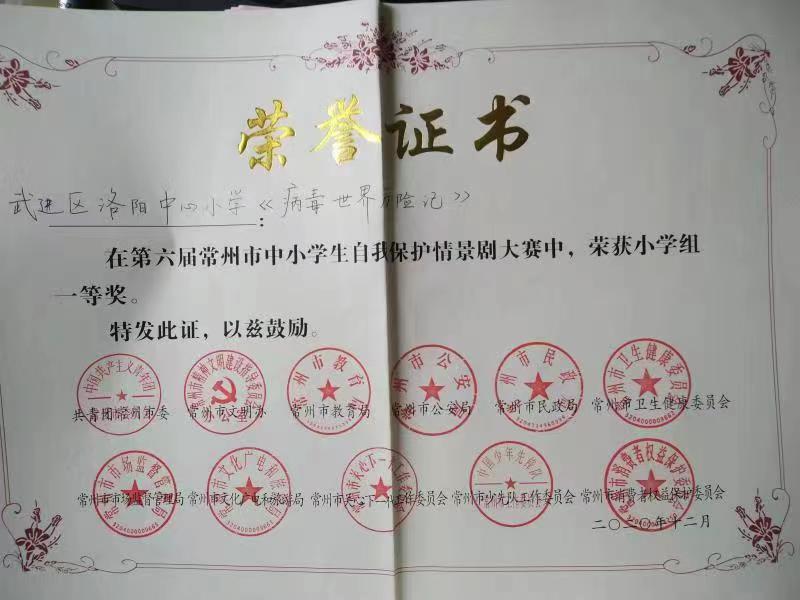 荣誉证书
武进区洛阳中心小学《病毒世界历险记》
:
在第六届常州市中小学生自我保护情景剧大赛中，荣获小学组
一等奖。
特发此证，以兹鼓励。
共青团常州市委 常州市文明办 常州市教育局 常州市公安局 常州市民政局 常州市卫生健康委员会
常州市市场监督管理局 常州市文化广电和旅游局 常州市关心下一代工作委员会 常州市少先队工作委员会 常州市消费者权益保护委员会
二〇二〇年十二月